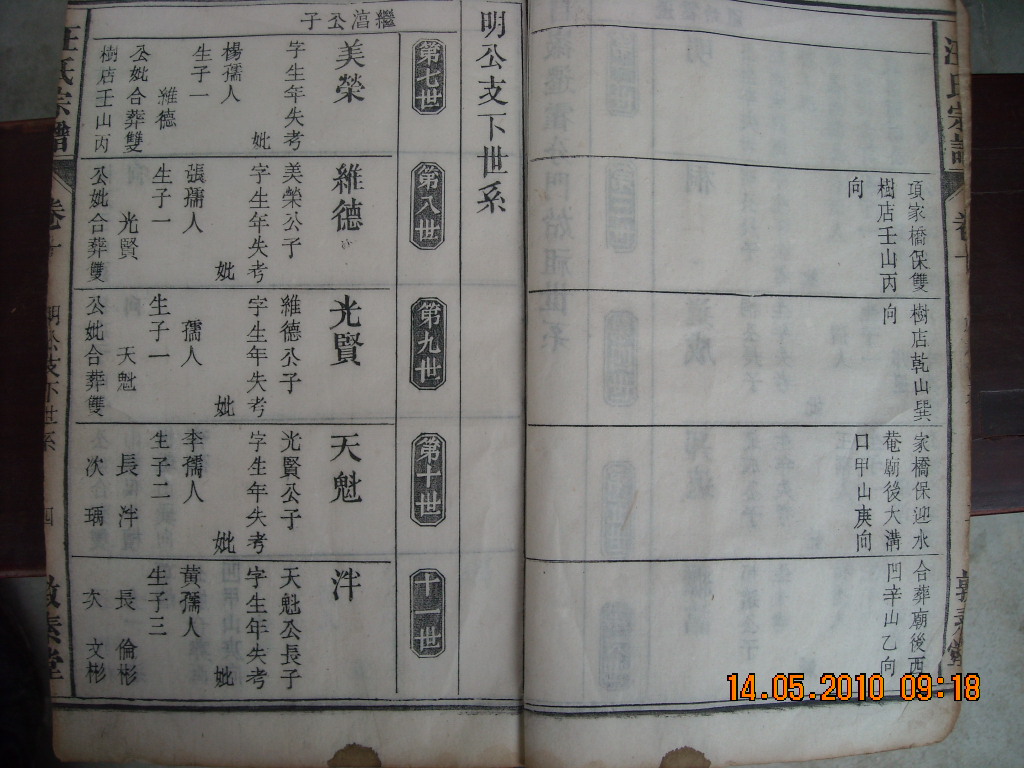 項家橋保雙
樹店壬山丙
向
樹店乾山巽
向
家橋保迎水
菴廟後大溝
口甲山庚向
合葬廟後西
凹辛山乙向
明公支下世系
第七世
繼公子
美榮
字生年失考
妣
楊孺人
生子一
維德
公妣合葬雙
樹店壬山丙
第八世
維德
美榮公子
字生年失考
妣
張孺人
生子一
光賢
公妣合葬雙
第九世
光賢
維德公子
字生年失考
妣
孺人
生子一
天魁
公妣合葬雙
第十世
天魁
光賢公子
字生年失考
妣
李孺人
生子二
長泮
次瑀
十一世
泮
天魁公長子
字生年失考
妣
黃孺人
生子三
長倫彬
次文彬
汪氏宗譜
卷十
明公支下世系
四
敦素堂
14.05.2010 09:18